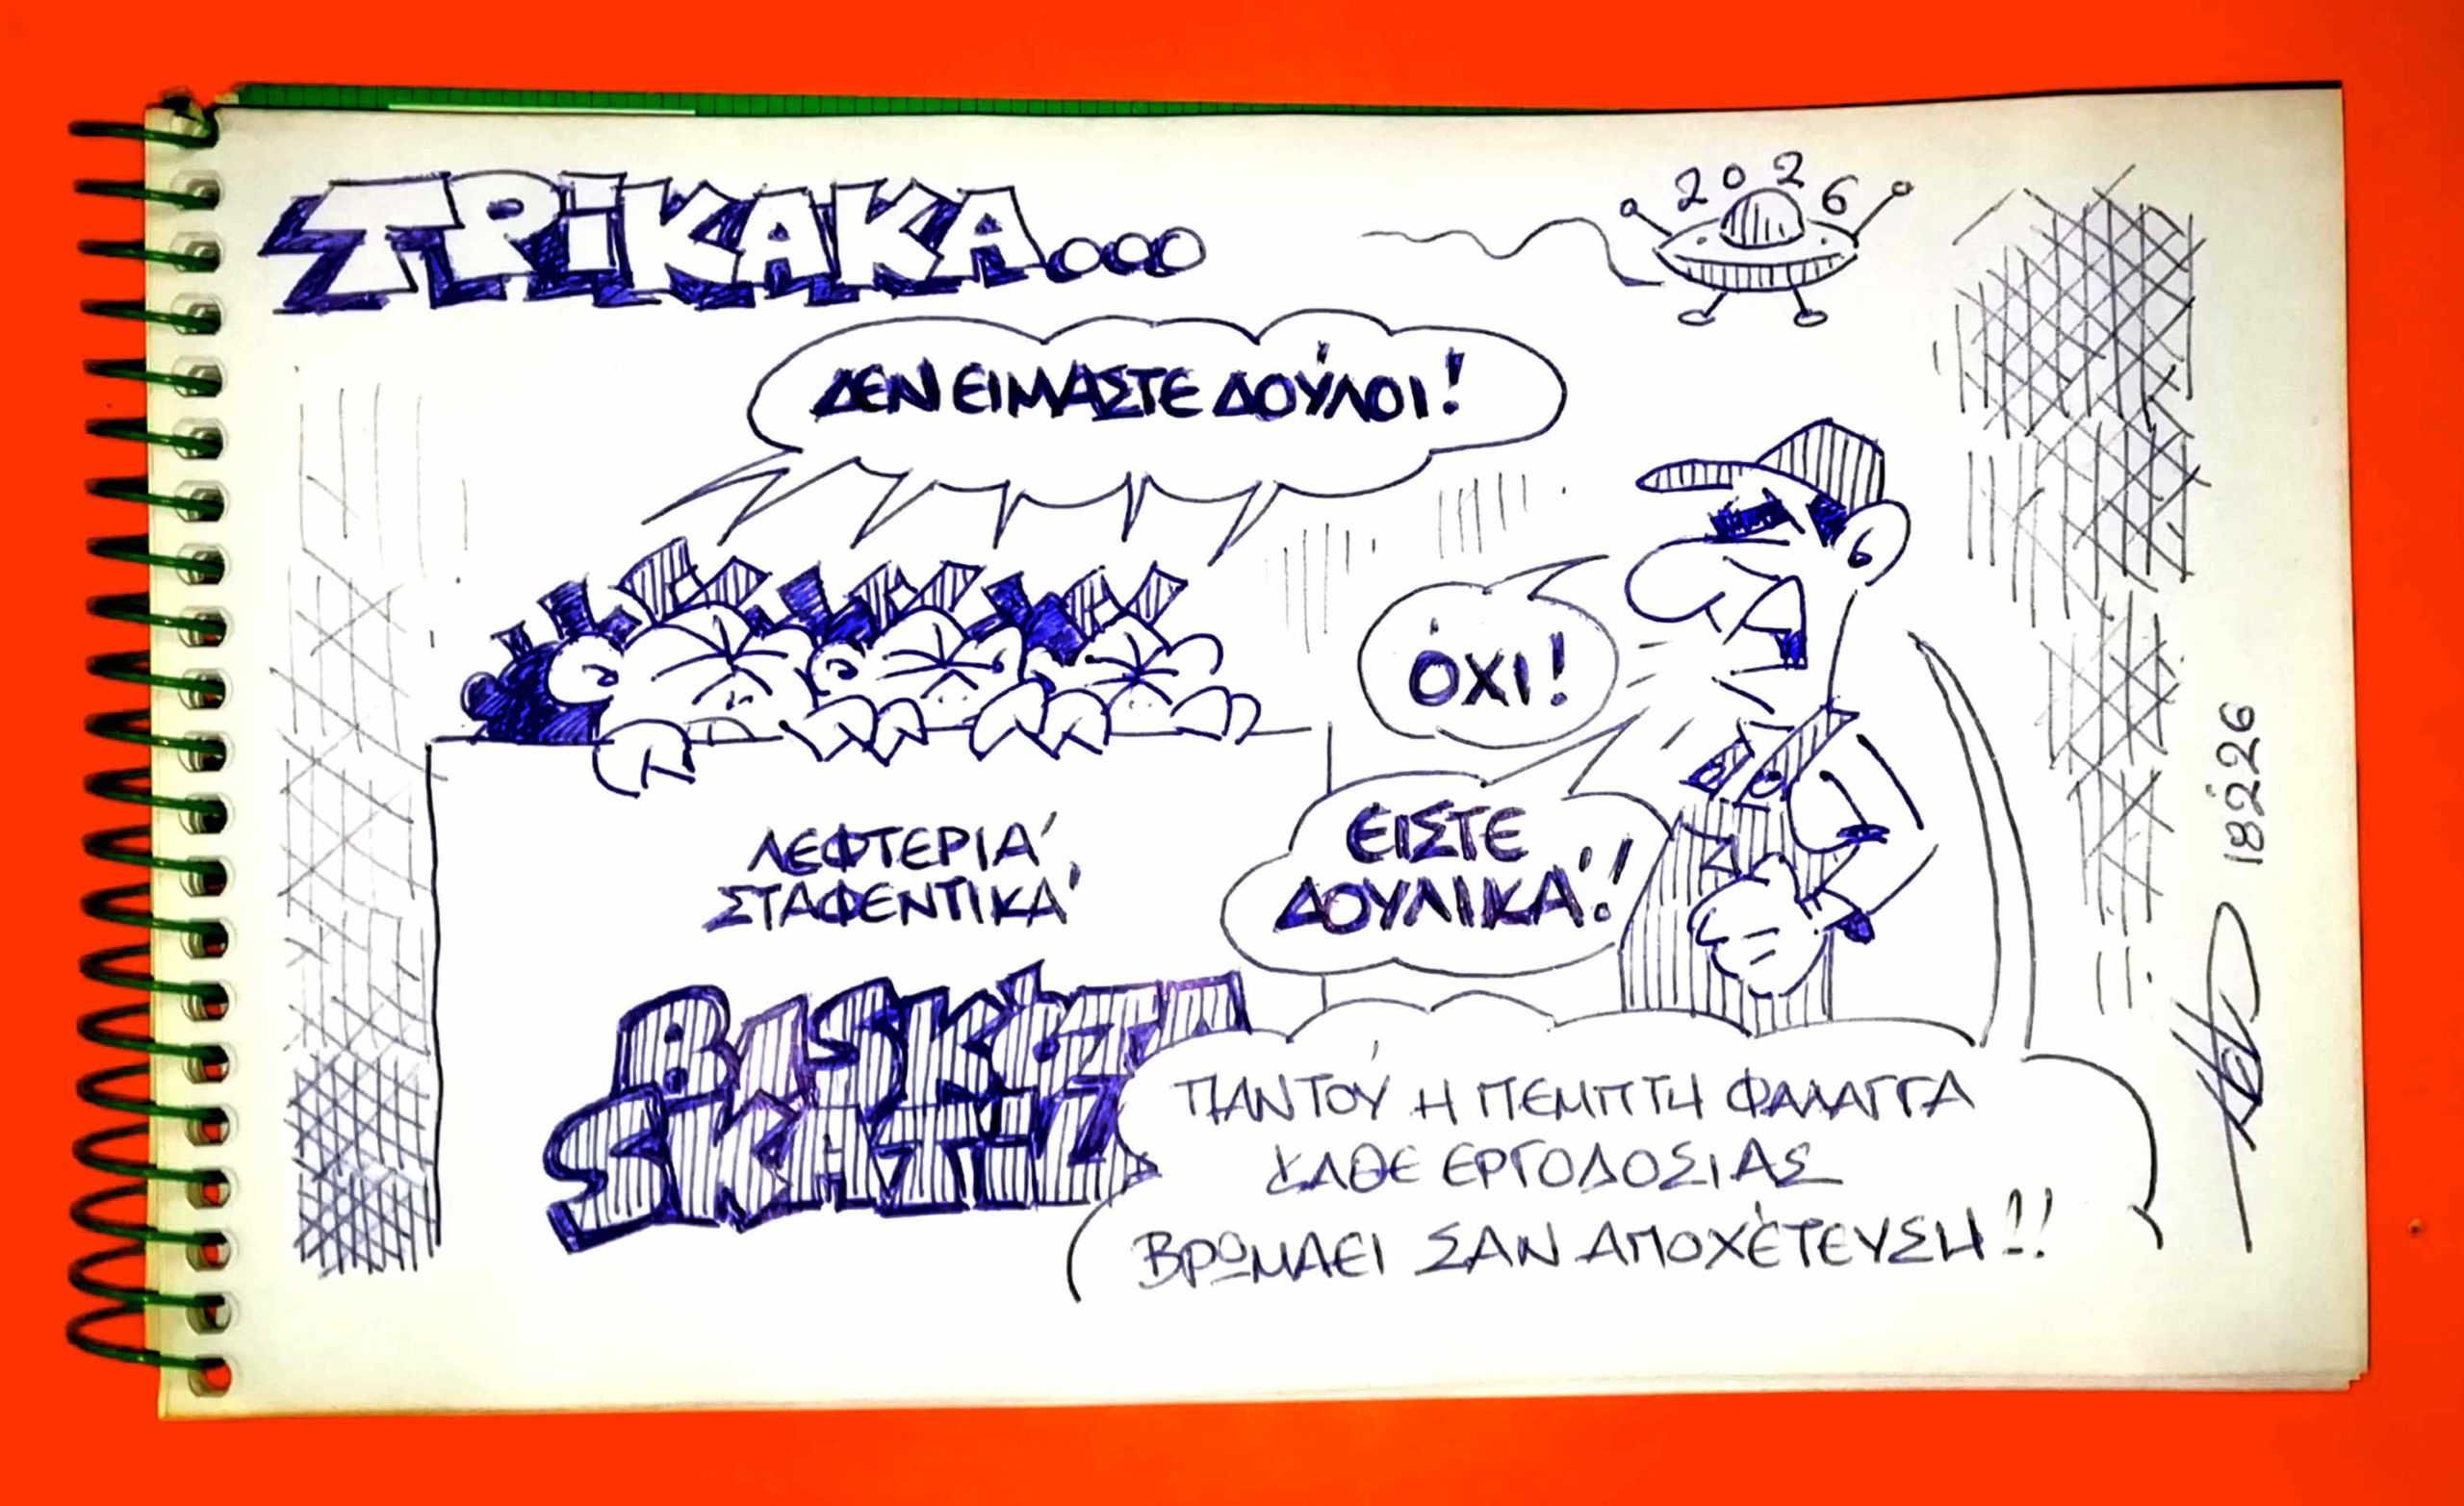 ΤΡiΚΑΚΑ...
2026
ΔΕΝ ΕΙΜΑΣΤΕ ΔΟΎΛΟΙ!
ΌΧΙ!
ΕΙΣΤΕ
ΔΟΥΛΙΚΆ!!
ΛΕΦΤΕΡΙΆ
ΣΤΑΦΕΝΤΙΚΆ
SKATiLA
ΠΑΝΤΟΎ Η ΠΕΜΠΤΗ ΦΑΛΑΓΓΑ
ΚΑΘΕ ΕΡΓΟΔΟΣΙΑΣ
ΒΡΩΜΑΕΙ ΣΑΝ ΑΠΟΧΈΤΕΥΣΗ!!
18226